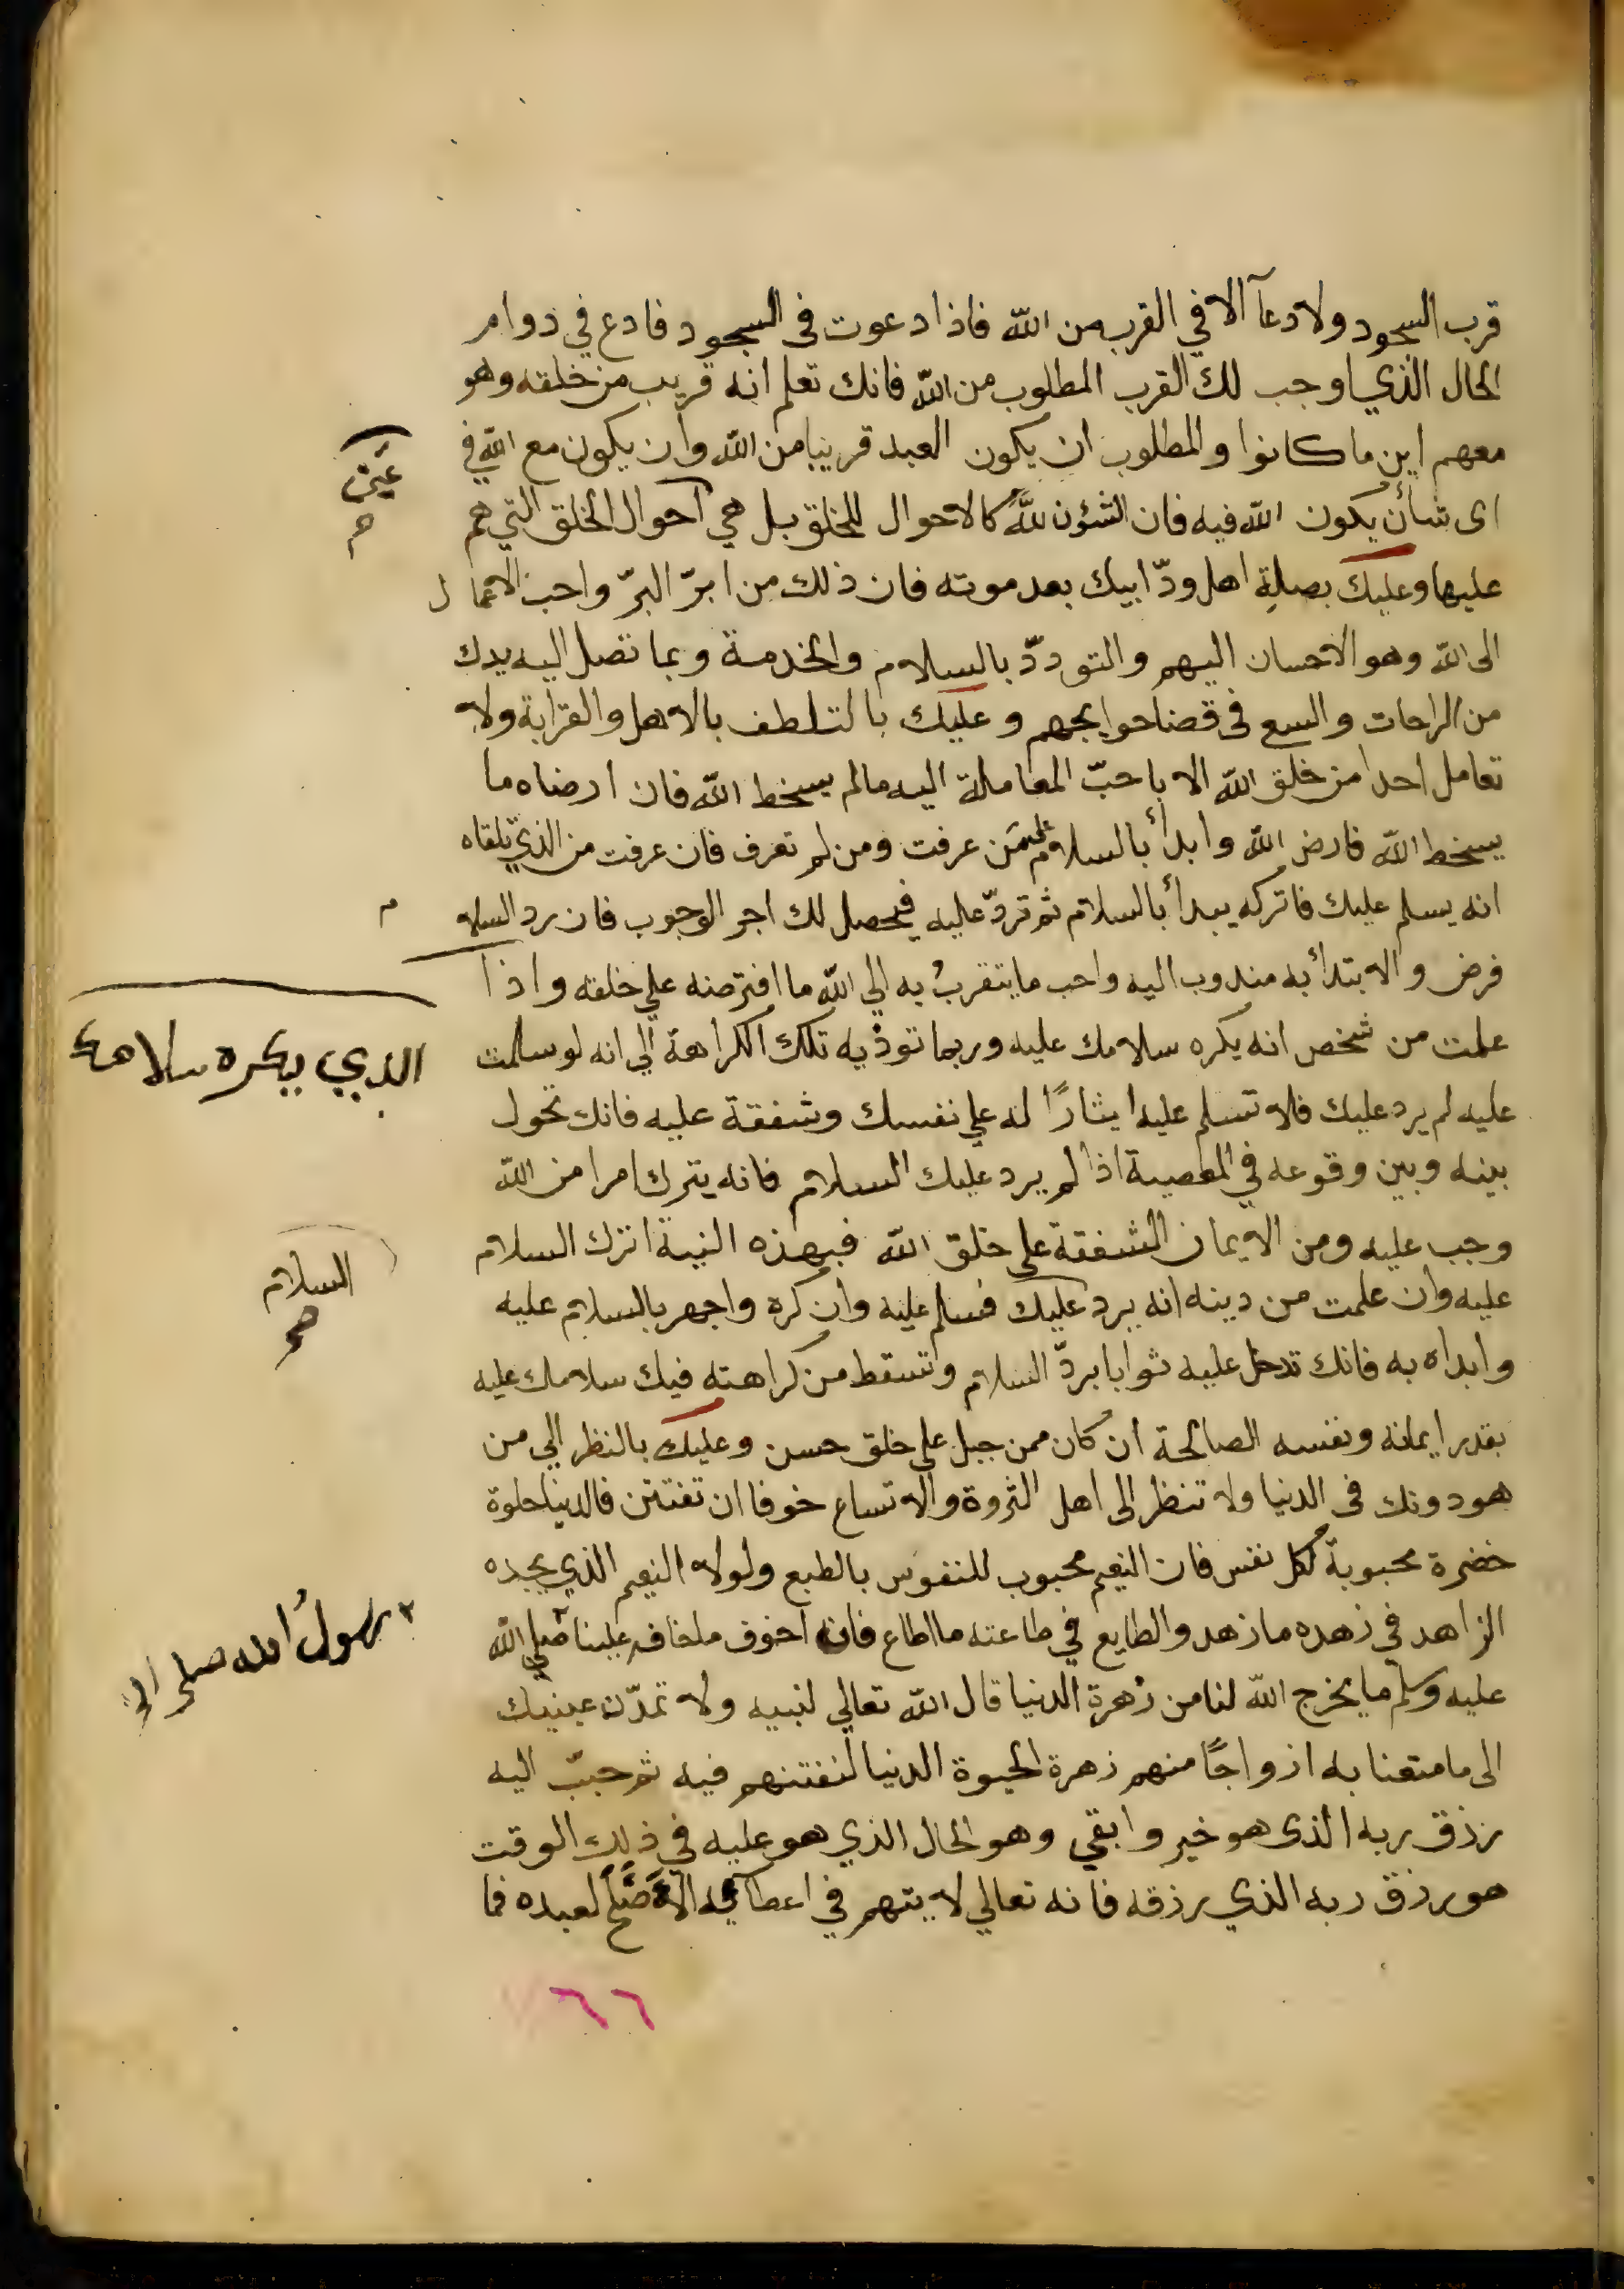 قرب السجود ولا دعآ الا في القرب من الله فاذا دعوت فى السجود فادع في دوام
الحال الذي اوجب لك القرب المطلوب من الله فانك تعلم انه قريب من خلقه وهو
معهم اين ما كانوا والمطلوب ان يكون العبد قريبا من الله وان يكون مع الله في
اى شأن يكون الله فيه فان الشؤن لله كالاحوال للخلق بل هي احوال الخلق التي هم
عليها وعليك بصلة اهل ودّ ابيك بعد موته فان ذلك من ابرّ البرّ واحب الاعمال
الى الله وهو الاحسان اليهم والتودّد بالسلام والخدمة وبما تصل اليه يدك
من الراحات والسع فى قضا حوايجهم وعليك بالتلطف بالاهل والقرابة ولا
تعامل احدا من خلق الله الا باحبّ المعاملة اليه ما لم يسخط الله فان ارضاه ما
يسخط الله فارض الله وابدأ بالسلام على من عرفت ومن لم تعرف فان عرفت من الذي تلقاه
انه يسلم عليك فاتركه يبدأ بالسلام ثم تردّ عليه فيحصل لك اجر الوجوب فان رد السلام
فرض والابتدأ به مندوب اليه واحب ما يتقرب به الي الله ما افترضه علي خلقه واذا
علمت من شخص انه يكره سلامك عليه وربما توذيه تلك الكراهة الي انه لو سلمت
عليه لم يرد عليك فلا تسلم عليه ايثارًا له علي نفسك وشفقة عليه فانك تحول
بينه وبين وقوعه في المعصية اذا لم يرد عليك السلام فانه يترك امرا من الله
وجب عليه ومن الايمان الشفقة على خلق الله فبهذه النية اترك السلام
عليه وان علمت من دينه انه يرد عليك فسلم عليه وان كره واجهر بالسلام عليه
وابداه به فانك تدخل عليه ثوابا بردّ السلام وتسقط من كراهته فيك سلامك عليه
بقدر ايمانه ونفسه الصالحة ان كان ممن جبل على خلق حسن وعليك بالنظر الي من
هو دونك فى الدنيا ولا تنظر الى اهل الثروة والاتساع خوفا ان تفتتن فالدينا حلوة
خضرة محبوبة لكل نفس فان النعيم محبوب للنفوس بالطبع ولولا النعيم الذي يجده
الزاهد في زهده ما زهد والطايع في طاعته ما اطاع فان اخوف ما خاف علينا صلي الله
عليه وسلم ما يخرج الله لنا من زهرة الدنيا قال الله تعالي لنبيه ولا تمدّن عينيك
الى ما متعنا به ازواجًا منهم زهرة الحيوة الدنيا لنفتنهم فيه ثم حبّب اليه
رزق ربه الذى هو خير وابقي وهو الحال الذي هو عليه في ذلك الوقت
هو رزق ربه الذي رزقه فانه تعالي لا يتهم في اعطائه الاصلح لعبده فما
٦٦
عين
الذي يكره سلامك
السلام
رسول الله صلى الله